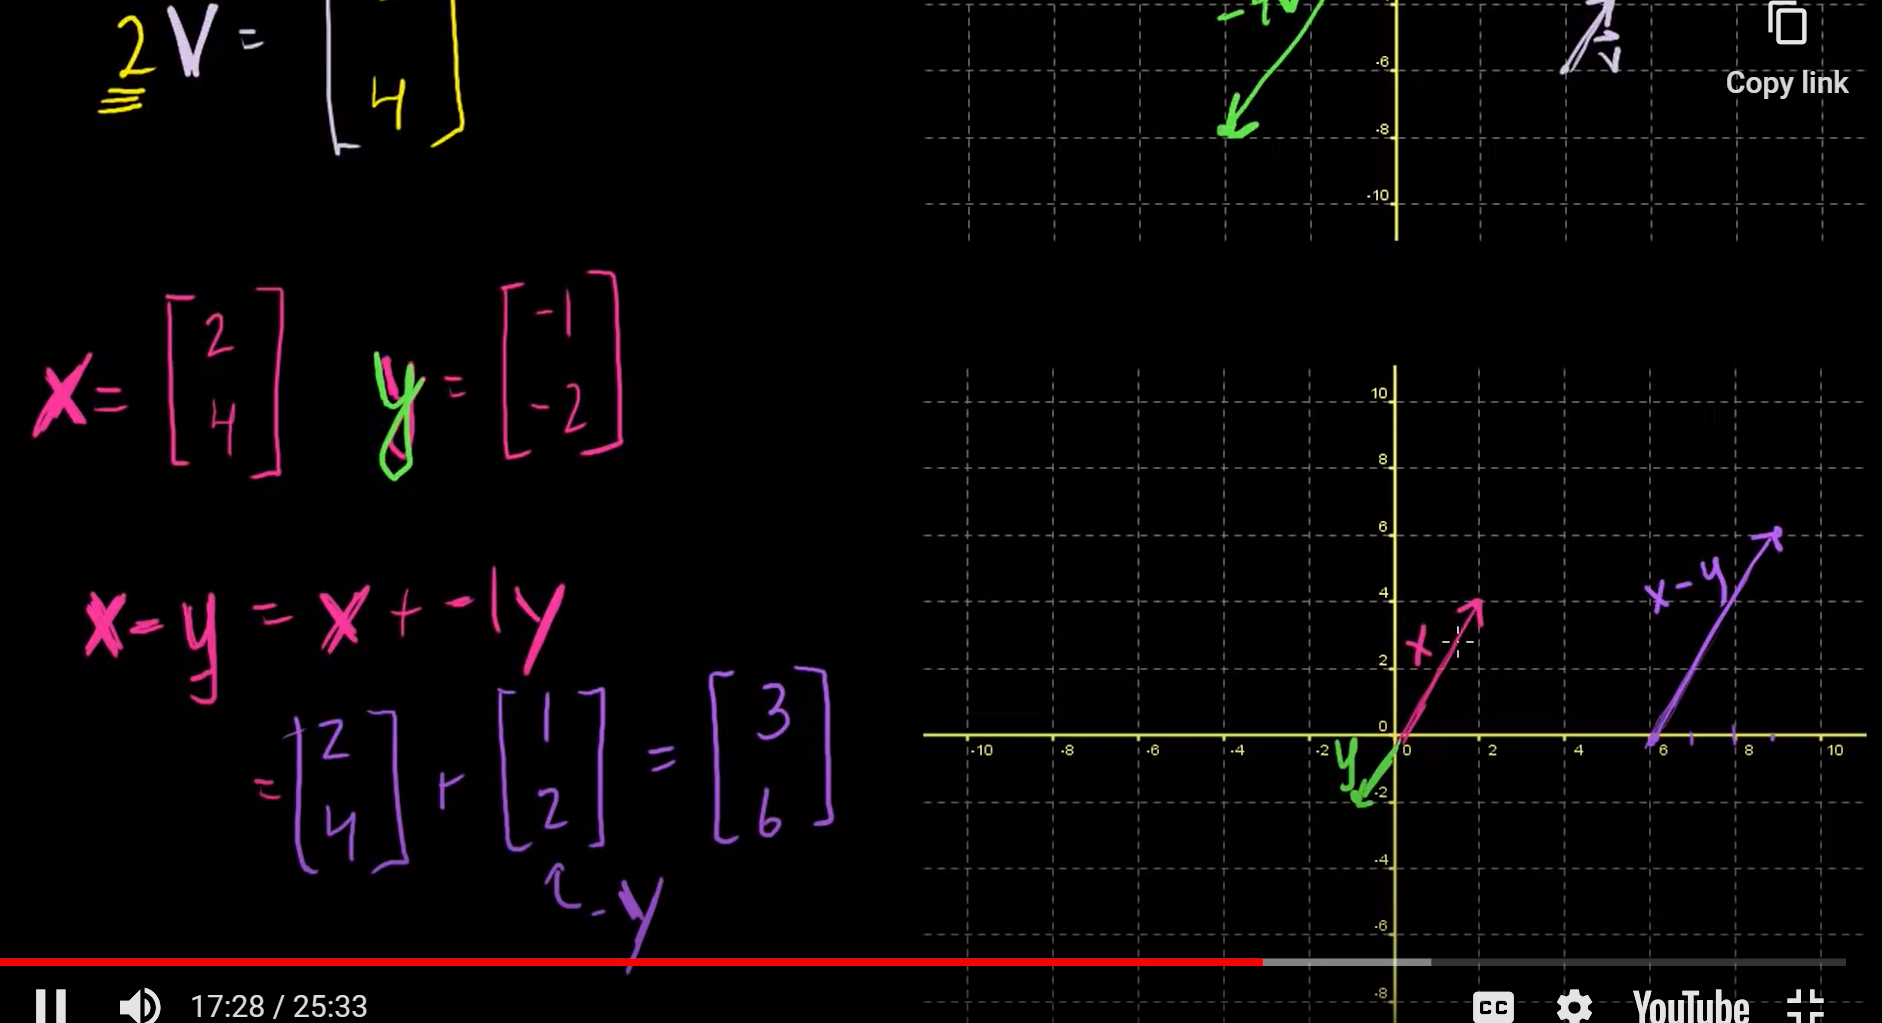 2 V = [ 4 ]
-4v
v
Copy link
-6
-8
-10
x = [ 2 4 ] y = [ -1 -2 ]
x - y = x + -1y
= [ 2 4 ] + [ 1 2 ] = [ 3 6 ]
-y
10
8
6
4
2
0
-10 -8 -6 -4 -2 0 2 4 6 8 10
-2
-4
-6
-8
x
y
x - y
17:28 / 25:33
CC
YouTube